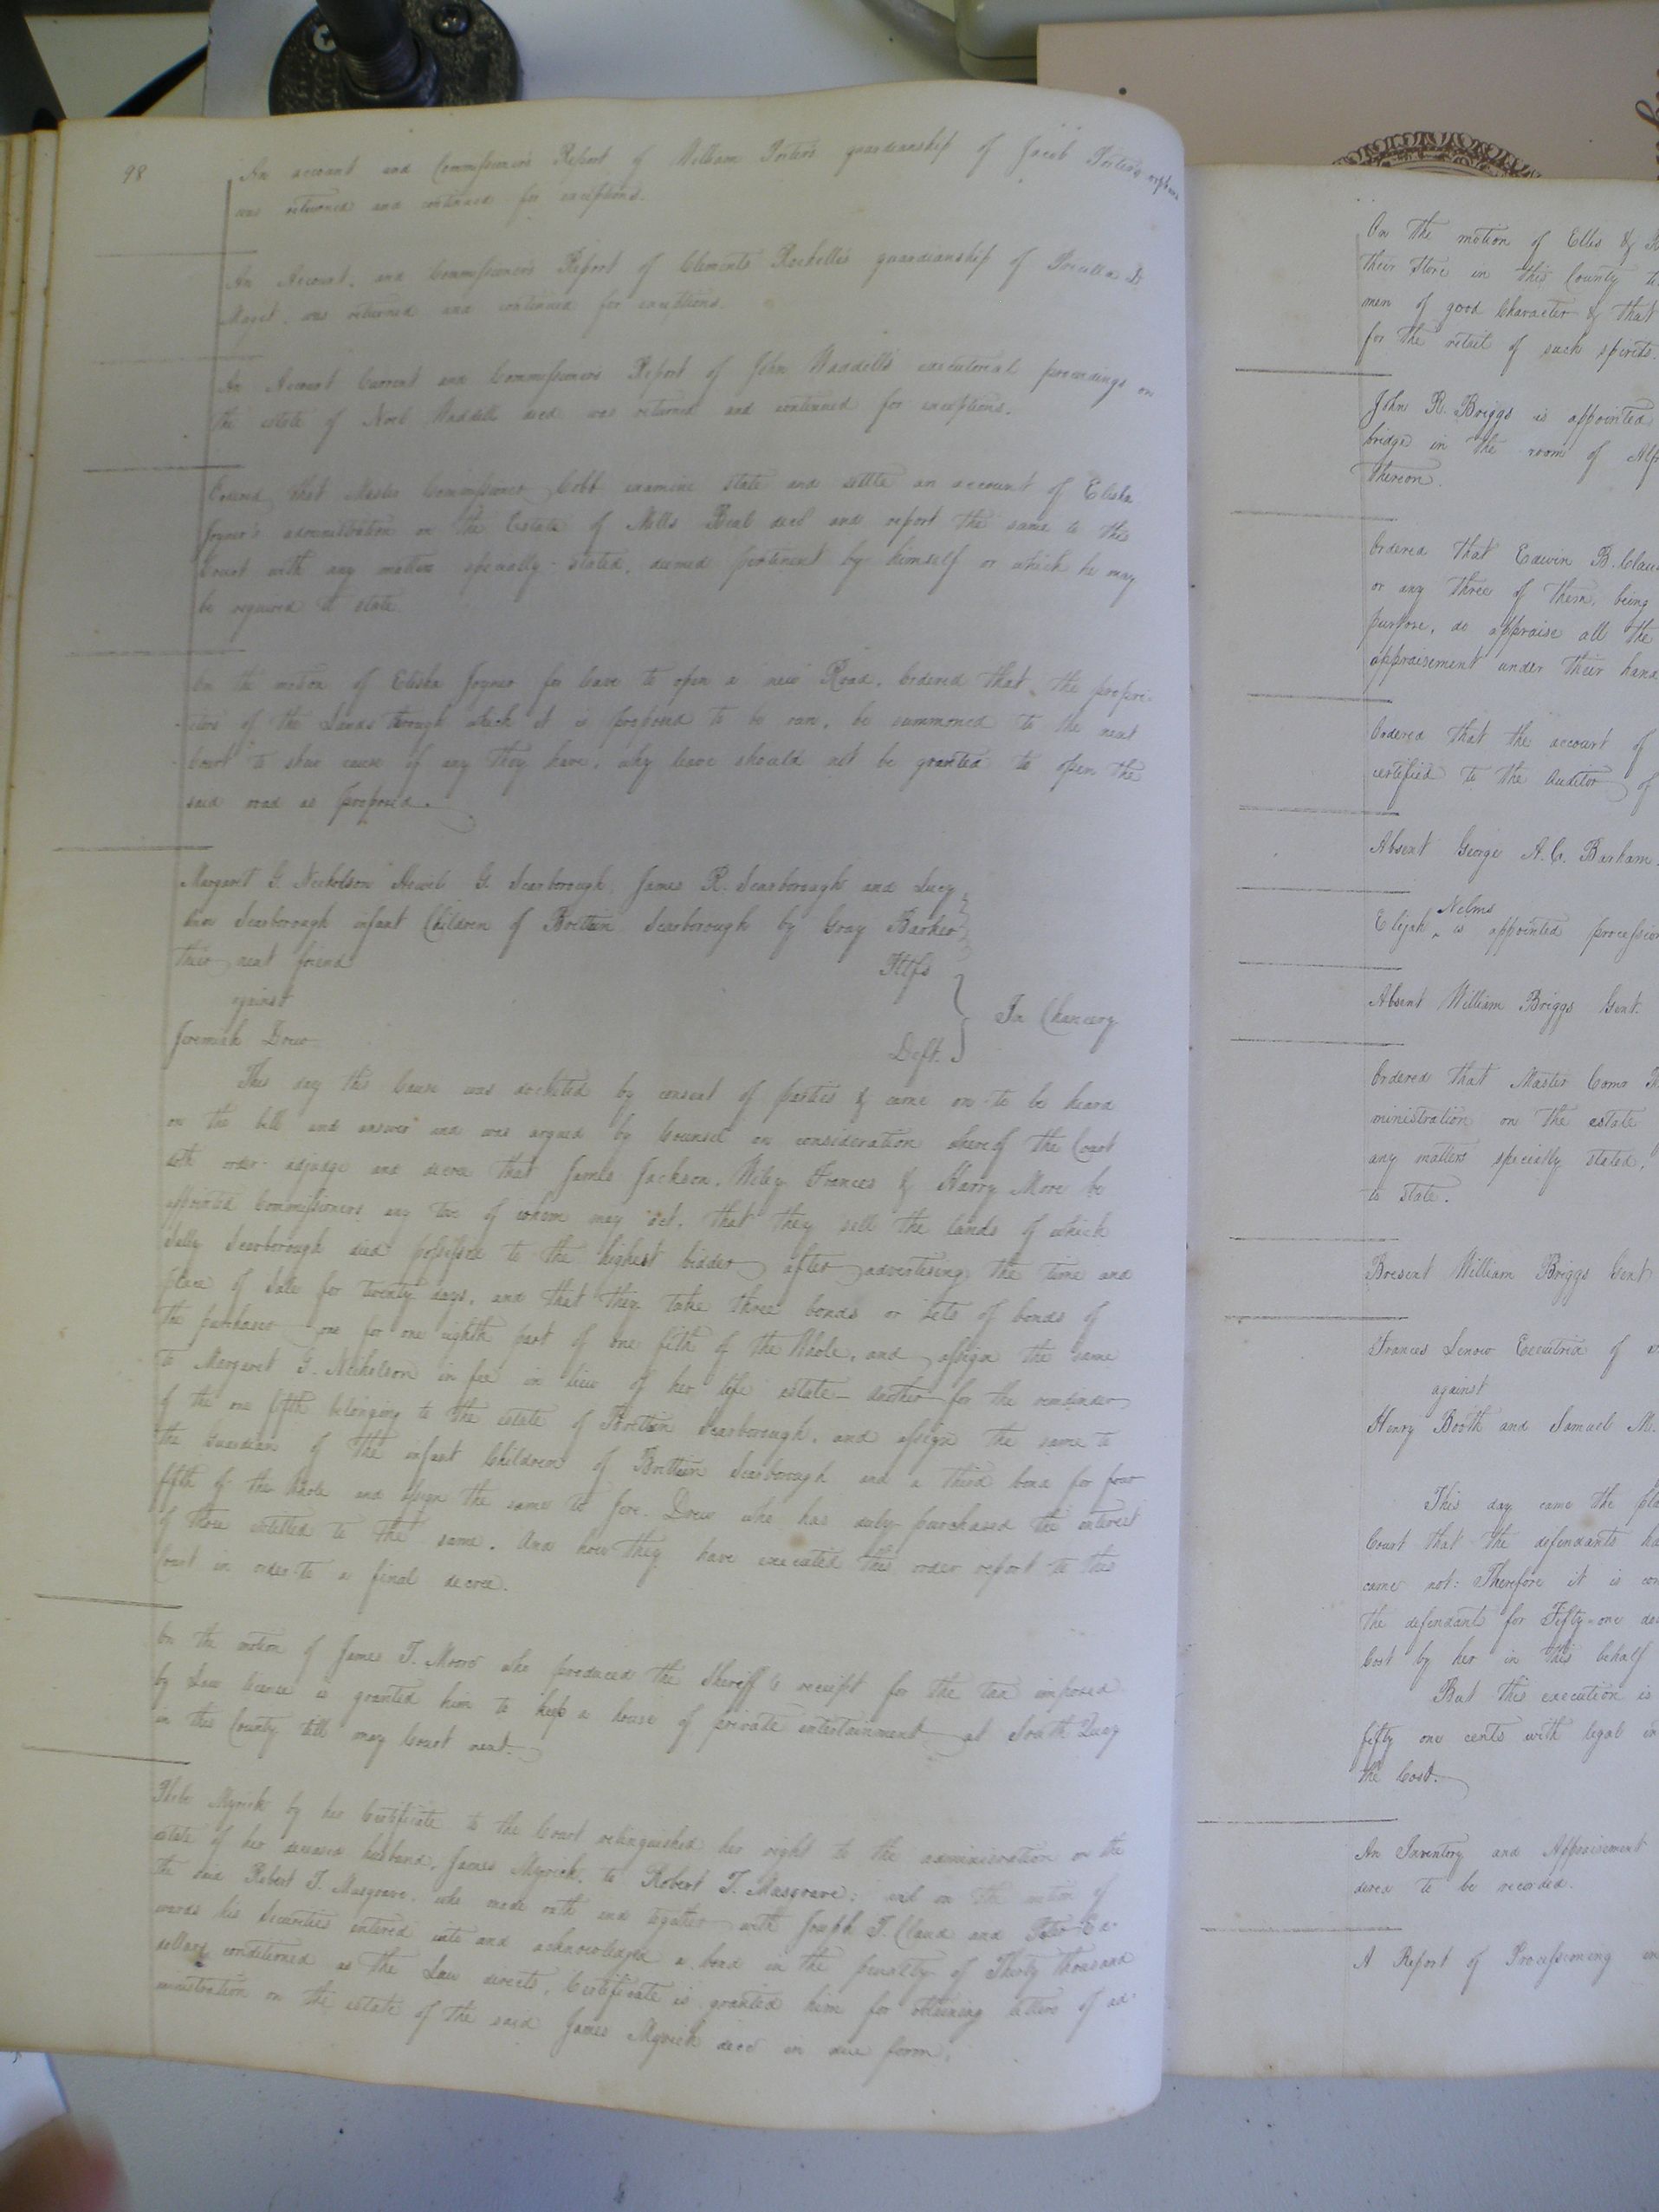 98
An account and Commissioners Report of William Porter's guardianship of Jacob Porter's orphans
was returned and continued for exceptions.
An Account, and Commissioners Report of Clements Rochelle's guardianship of
was returned and continued for exceptions.
An Account Current and Commissioners Report of John Waddell's executorial proceedings on
the estate of Noel Waddell decd was returned and continued for exceptions.
Ordered that Master Commissioner Cobb examine state and settle an account of Elisha
Joyner's administration on the Estate of Mills Beal decd and report the same to this
Court with any matters specially stated, deemed pertinent by himself or which he may
be required to state.
On the motion of Elisha Joyner for leave to open a new Road. Ordered that the proprie-
-tors of the Lands through which it is proposed to be run, be summoned to the next
Court to shew cause if any they have, why leave should not be granted to open the
said road as proposed.
Margaret G. Nicholson Newel G. Scarborough, James R. Scarborough and Lucy
Ann Scarborough infant Children of Brittain Scarborough by Gray Barker
their next friend Pltfs
against
Jeremiah Drew Deft. In Chancery
This day this Cause was docketed by consent of parties & came on to be heard
on the bill and answer and was argued by Counsel on consideration whereof the Court
doth order adjudge and decree that James Jackson, Wiley Frances & Harry More be
appointed Commissioners any two of whom may act, that they sell the lands of which
Sally Scarborough died possessed to the highest bidder after advertising the time and
place of Sale for twenty days, and that they take three bonds or sets of bonds of
the purchaser one for one eighth part of one fifth of the Whole, and assign the same
to Margaret G. Nicholson in fee in lieu of her life estate - another for the remainder
of the one fifth belonging to the estate of Brittain Scarborough, and assign the same to
the Guardian of the infant Children of Brittain Scarborough and a third bond for four
fifth of the Whole and assign the same to Jere. Drew who has duly purchased the interest
of those entitled to the same. And how they have executed this order report to this
Court in order to a final decree.
On the motion of James T. Moore who produced the Sheriff's receipt for the tax imposed
by Law licence is granted him to keep a house of private entertainment at South Quay
in this County till may Court next.
Phebe Myrick by her Certificate to the Court relinquished her right to the administration on the
estate of her deceased husband, James Myrick, to Robert T. Musgrave; and on the motion of
the said Robert T. Musgrave, who made oath and together with Joseph T. Claud and Peter Ed-
wards his Securities entered into and acknowledged a bond in the penalty of Thirty thousand
dollars conditioned as the Law directs. Certificate is granted him for obtaining letters of ad-
ministration on the estate of the said James Myrick decd in due form.
On the motion of Ellis &
their Store in this County
men of good Character & that
for the retail of such spirits.
John R. Briggs is appointed
bridge in the room of
thereon.
Ordered that Edwin B.
or any three of them, being
purpose, do appraise all the
appraisement under their
Ordered that the account of
certified to the Auditor of
Absent George A. C. Barham.
Nelms
Elijah ^ is appointed
Absent William Briggs Gent.
Ordered that Master Comr
ministration on the estate
any matters specially stated,
to state.
Present William Briggs Gent
Frances Lenow Executrix of
against
Henry Booth and Samuel M.
This day came the
Court that the defendants
came not: Therefore it is
the defendants for Fifty-one
Cost by her in this behalf
But this execution is
fifty one cents with legal
the Cost.
An Inventory and Appraisement
dered to be recorded.
A Report of Processioning